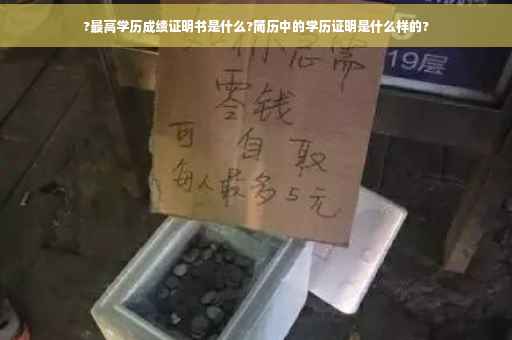 ?最高学历成绩证明书是什么?简历中的学历证明是什么样的?
你急需
零钱
可自取
每人最多5元
19层